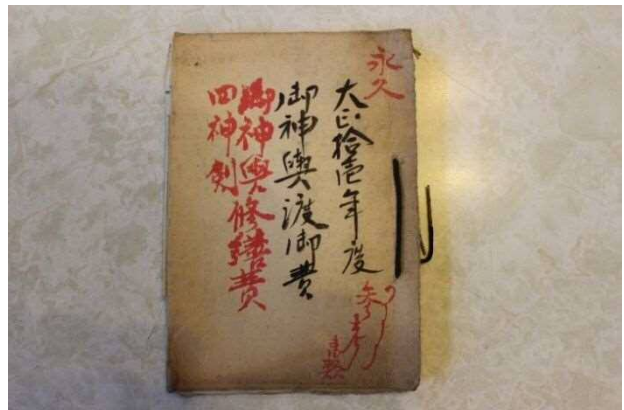 永久
大正拾壱年度
御神輿渡御費
御神輿修繕費
四神剣
参考